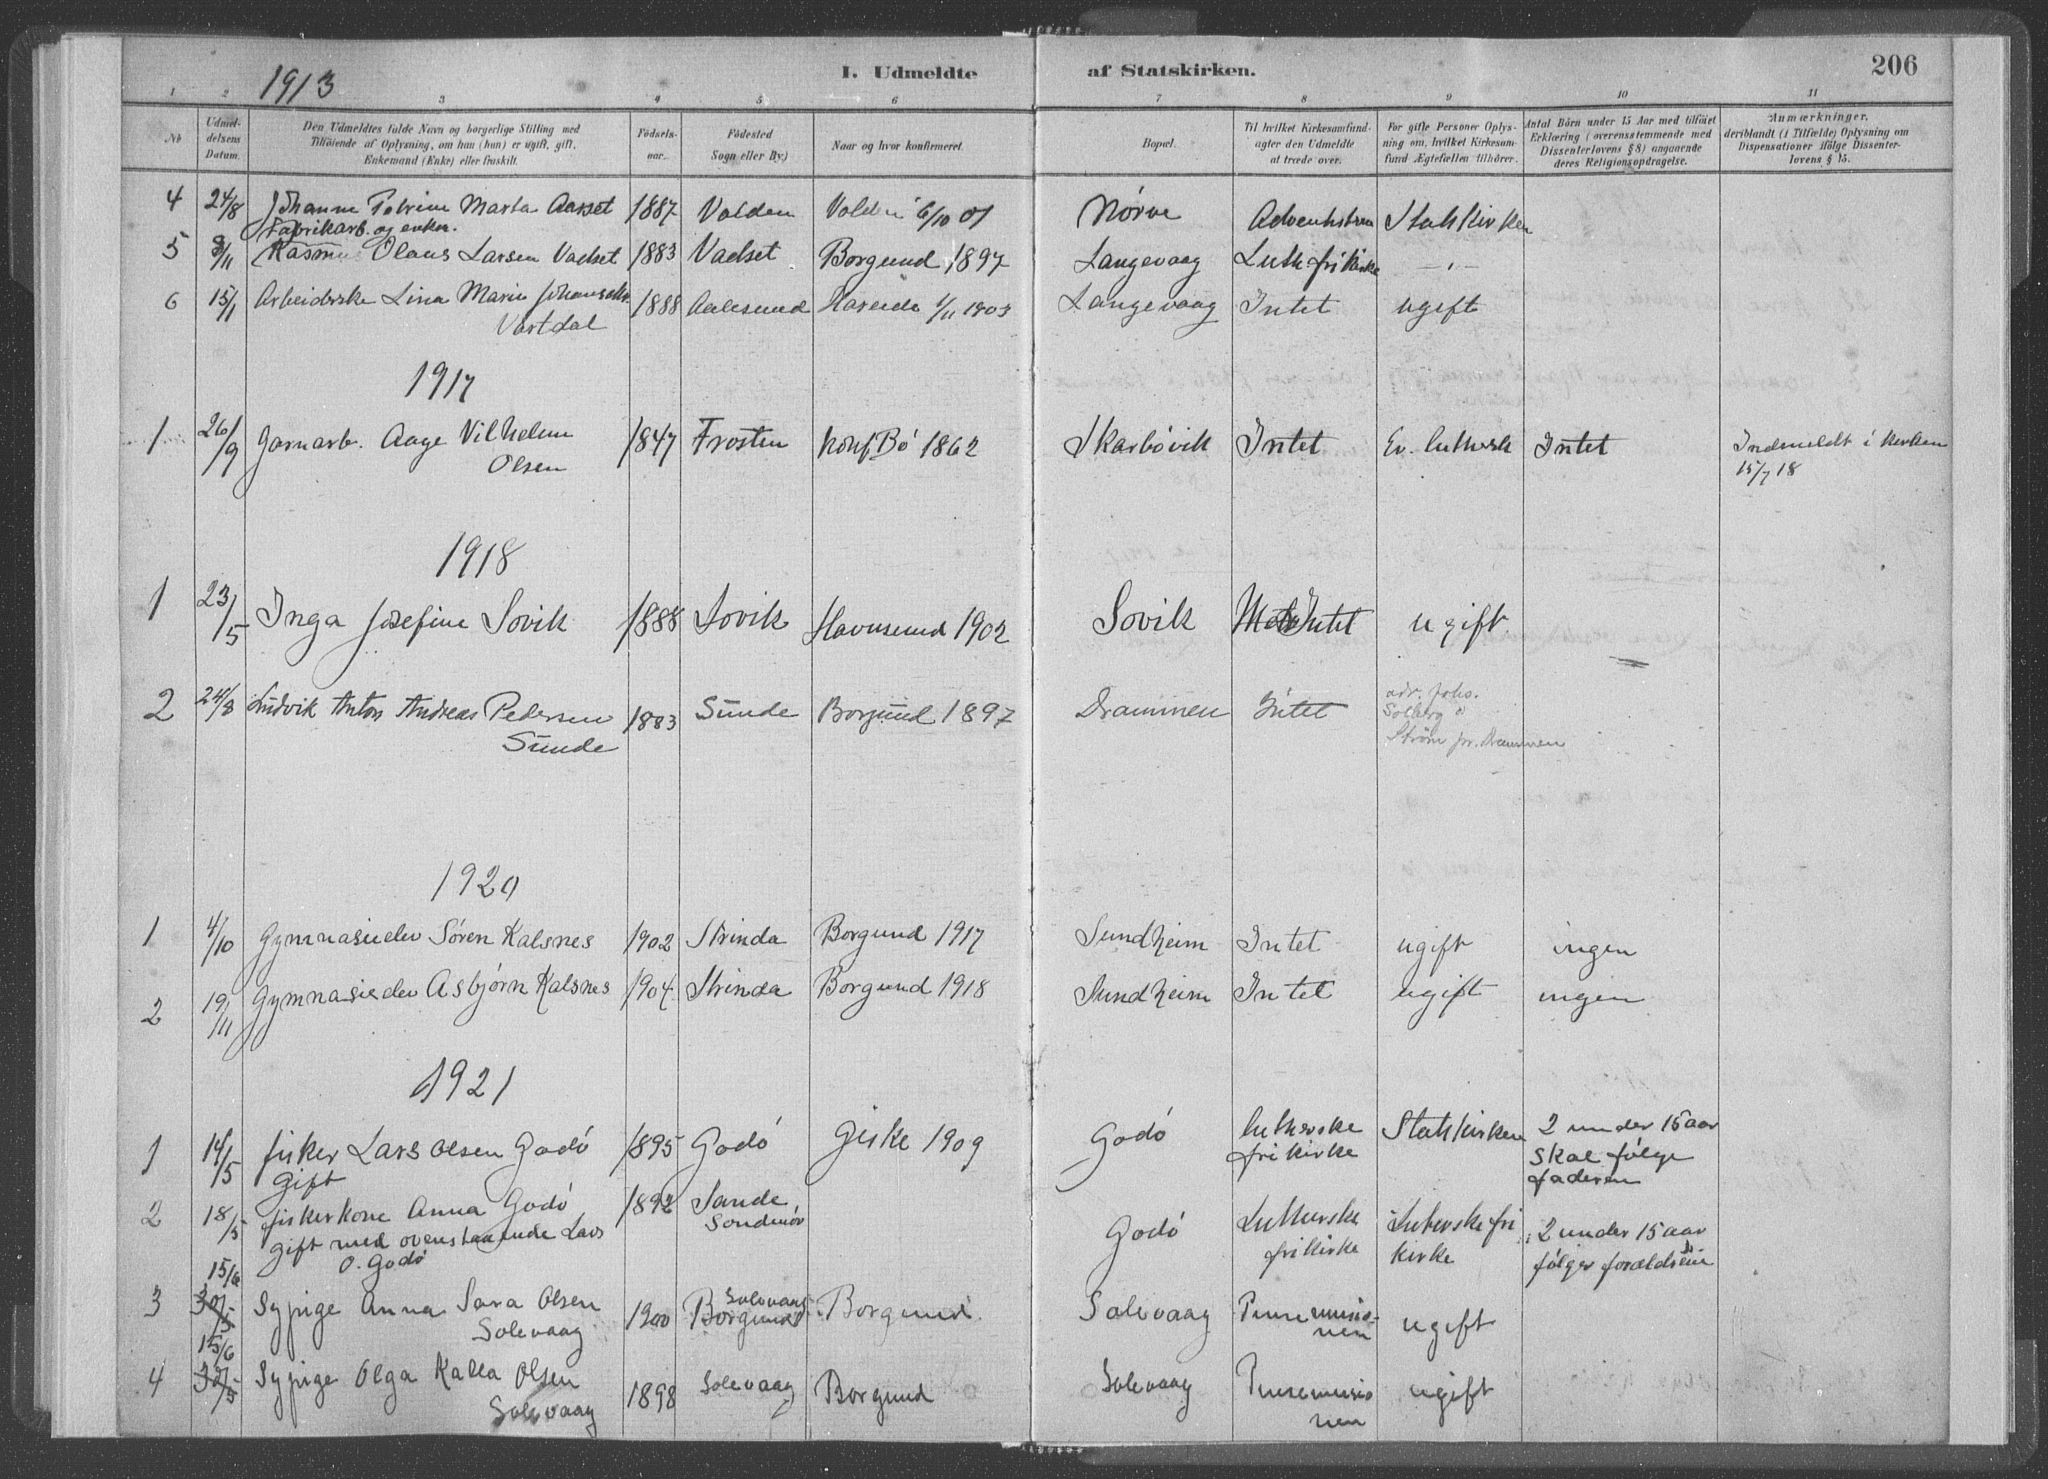 1913
I. Udmeldte af Statskirken.
206
1 2 3 4 5 6 7 8 9 10 11
No
Udmel-
delsens
Datum.
Den Udmeldtes fulde Navn og borgerlige Stilling med
Tilføiende af Oplysning, om han (hun) er ugift, gift,
Enkemand (Enke) eller fraskilt.
Fødsels-
aar.
Fødested
Sogn eller By.)
Naar og hvor konfirmeret.
Bopæl.
Til hvilket Kirkesamfund-
agter den Udmeldte
at træde over.
For gifte Personer Oplys-
ning om, hvilket Kirkesam-
fund Ægtefællen tilhører.
Antal Børn under 15 Aar med tilføiet
Erklæring (overensstemmende med
Dissenterlovens § 8) angaaende
deres Religionsopdragelse.
Anmærkninger,
deriblandt (i Tilfælde) Oplysning om
Dispensationer ifølge Dissenter-
lovens § 15.
4 24/8 Johanne Petrine Marta Aarset 1887 Volden Volden 6/10 01 Nørve Adventistern Statskirken
Fabrikarb. og enke.
5 9/11 Rasmus Olaus Larsen Vadset 1883 Vadset Borgund 1897 Langevaag Luth frikirke —"—
6 15/1 Arbeiderske Lina Marie Johansdtr 1888 Aalesund Hareide 1/11 1903 Langevaag Intet ugift
Vartdal
1917
1 26/9 Garnarb. Aage Vilhelm 1847 Frosten Konf Bö 1862 Skarbövik Intet Ev. luthersk Intet Indmeldt i kirken
Olsen 15/7 18
1918
1 23/5 Inga Josefine Sovik 1888 Sovik Havnsund 1902 Sovik Intet ugift
2 24/8 Ludvik Anton Andreas Pedersen 1883 Sunde Borgund 1897 Drammen Intet adr. Johs.
Sunde Solberg
Ström pr. Drammen
1920
1 4/10 Gymnasieelev Sören Kalsnes 1902 Strinda Borgund 1917 Sundheim Intet ugift ingen
2 19/11 Gymnasieelev Asbjørn Kalsnes 1904 Strinda Borgund 1918 Sundheim Intet ugift ingen
1921
1 14/5 fisker Lars Olsen Godö 1895 Godö Giske 1909 Godö lutherske Statskirken 2 under 15 aar
gift frikirke skal følge
faderen
2 18/5 fiskerkone Anna Godö 1892 Sande Godö Lutherske Luterske fri 2 under 15 aar
gift med ovenstaaende Lars Söndmör frikirke kirke følger forældrene
O. Godö
15/6
3 30/5 Sypige Anna Sara Olsen 1900 Solevaag Borgund Borgund Solevaag Pinsemisio- ugift
Solevaag nen
15/6
4 30/5 Sypige Olga Kalla Olsen 1898 Solevaag Borgund Solevaag Pinsemisio ugift
Solevaag nen